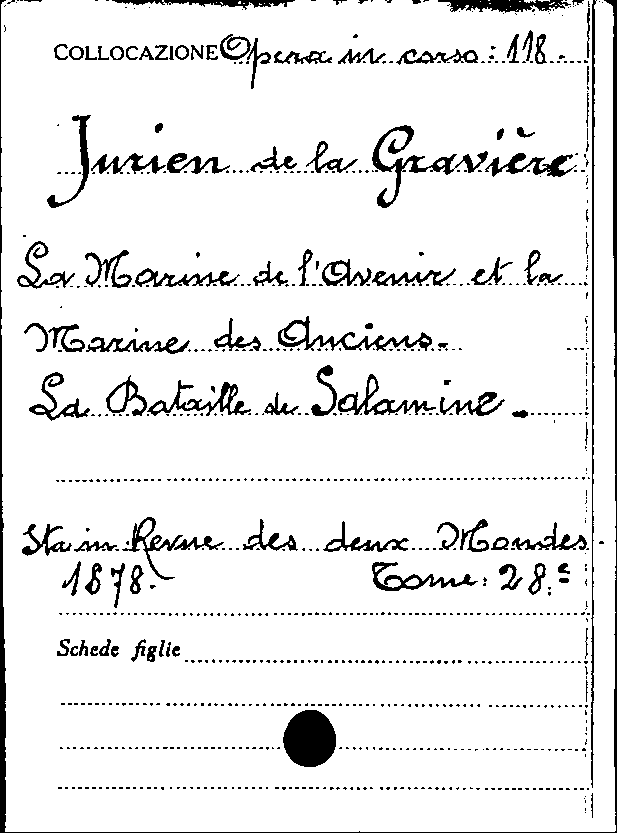 COLLOCAZIONE Opera in corso: 118.
Jurien de la Gravière
La Marine de l'Avenir et la
Marine des Anciens.
La Bataille de Salamine.
Sta in Revue des deux Mondes.
1878. Tome: 28.e
Schede figlie